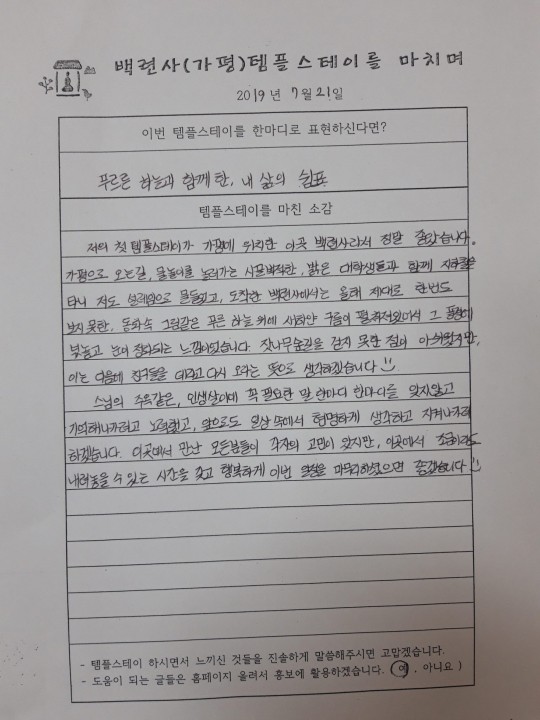 백련사(가평)템플스테이를 마치며
2019년 7월 21일
이번 템플스테이를 한마디로 표현하신다면?
푸르른 하늘과 함께한, 내 삶의 쉼표
템플스테이를 마친 소감
저의 첫 템플스테이가 가평에 위치한 이곳 백련사라서 정말 좋았습니다.
가평으로 오는길, 물놀이를 놀러가는 시끌벅적한, 밝은 대학생들과 함께 지하철을
타니 저도 설레임으로 물들었고, 도착한 백련사에서는 올해 제대로 한번도
보지못한, 동화속 그림같은 푸른 하늘 위에 새하얀 구름이 펼쳐져있어서 그 풍경에
넋놓고 눈이 정화되는 느낌이었습니다. 잣나무숲길을 걷지 못한 점이 아쉬웠지만,
이는 다음에 친구들을 데리고 다시 오라는 뜻으로 생각하겠습니다
스님의 주옥같은, 인생살이에 꼭 필요한 말 한마디 한마디를 잊지않고
기억해나가려고 노력했고, 앞으로도 일상 속에서 현명하게 생각하고 지켜나가려
하겠습니다. 이곳에서 만난 모든분들이 각자의 고민이 있지만, 이곳에서 조금이라도
내려놓을 수 있는 시간을 갖고 행복하게 이번 일정을 마무리하셨으면 좋겠습니다
- 템플스테이 하시면서 느끼신 것들을 진솔하게 말씀해주시면 고맙겠습니다.
- 도움이 되는 글들은 홈페이지 올려서 홍보에 활용하겠습니다. (예, 아니요)